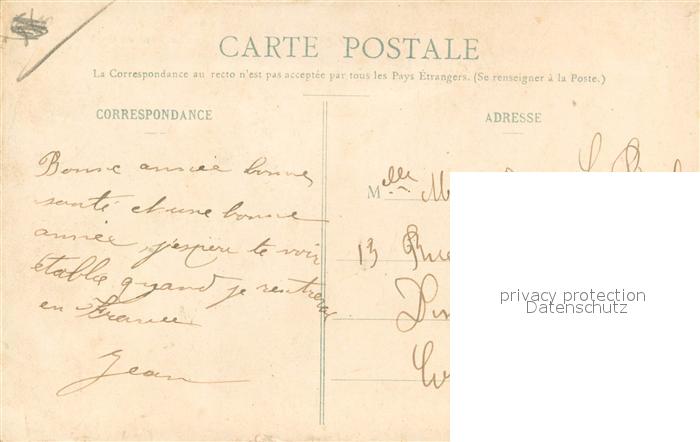 CARTE POSTALE
La Correspondance au recto n'est pas acceptée par tous les Pays Étrangers. (Se renseigner à la Poste.)
CORRESPONDANCE
ADRESSE
Bonne année bonne
santé et une bonne
année, j'espère te voir
établie quand je rentrerai
en France
Jean
Melle
13 Rue
privacy protection
Datenschutz